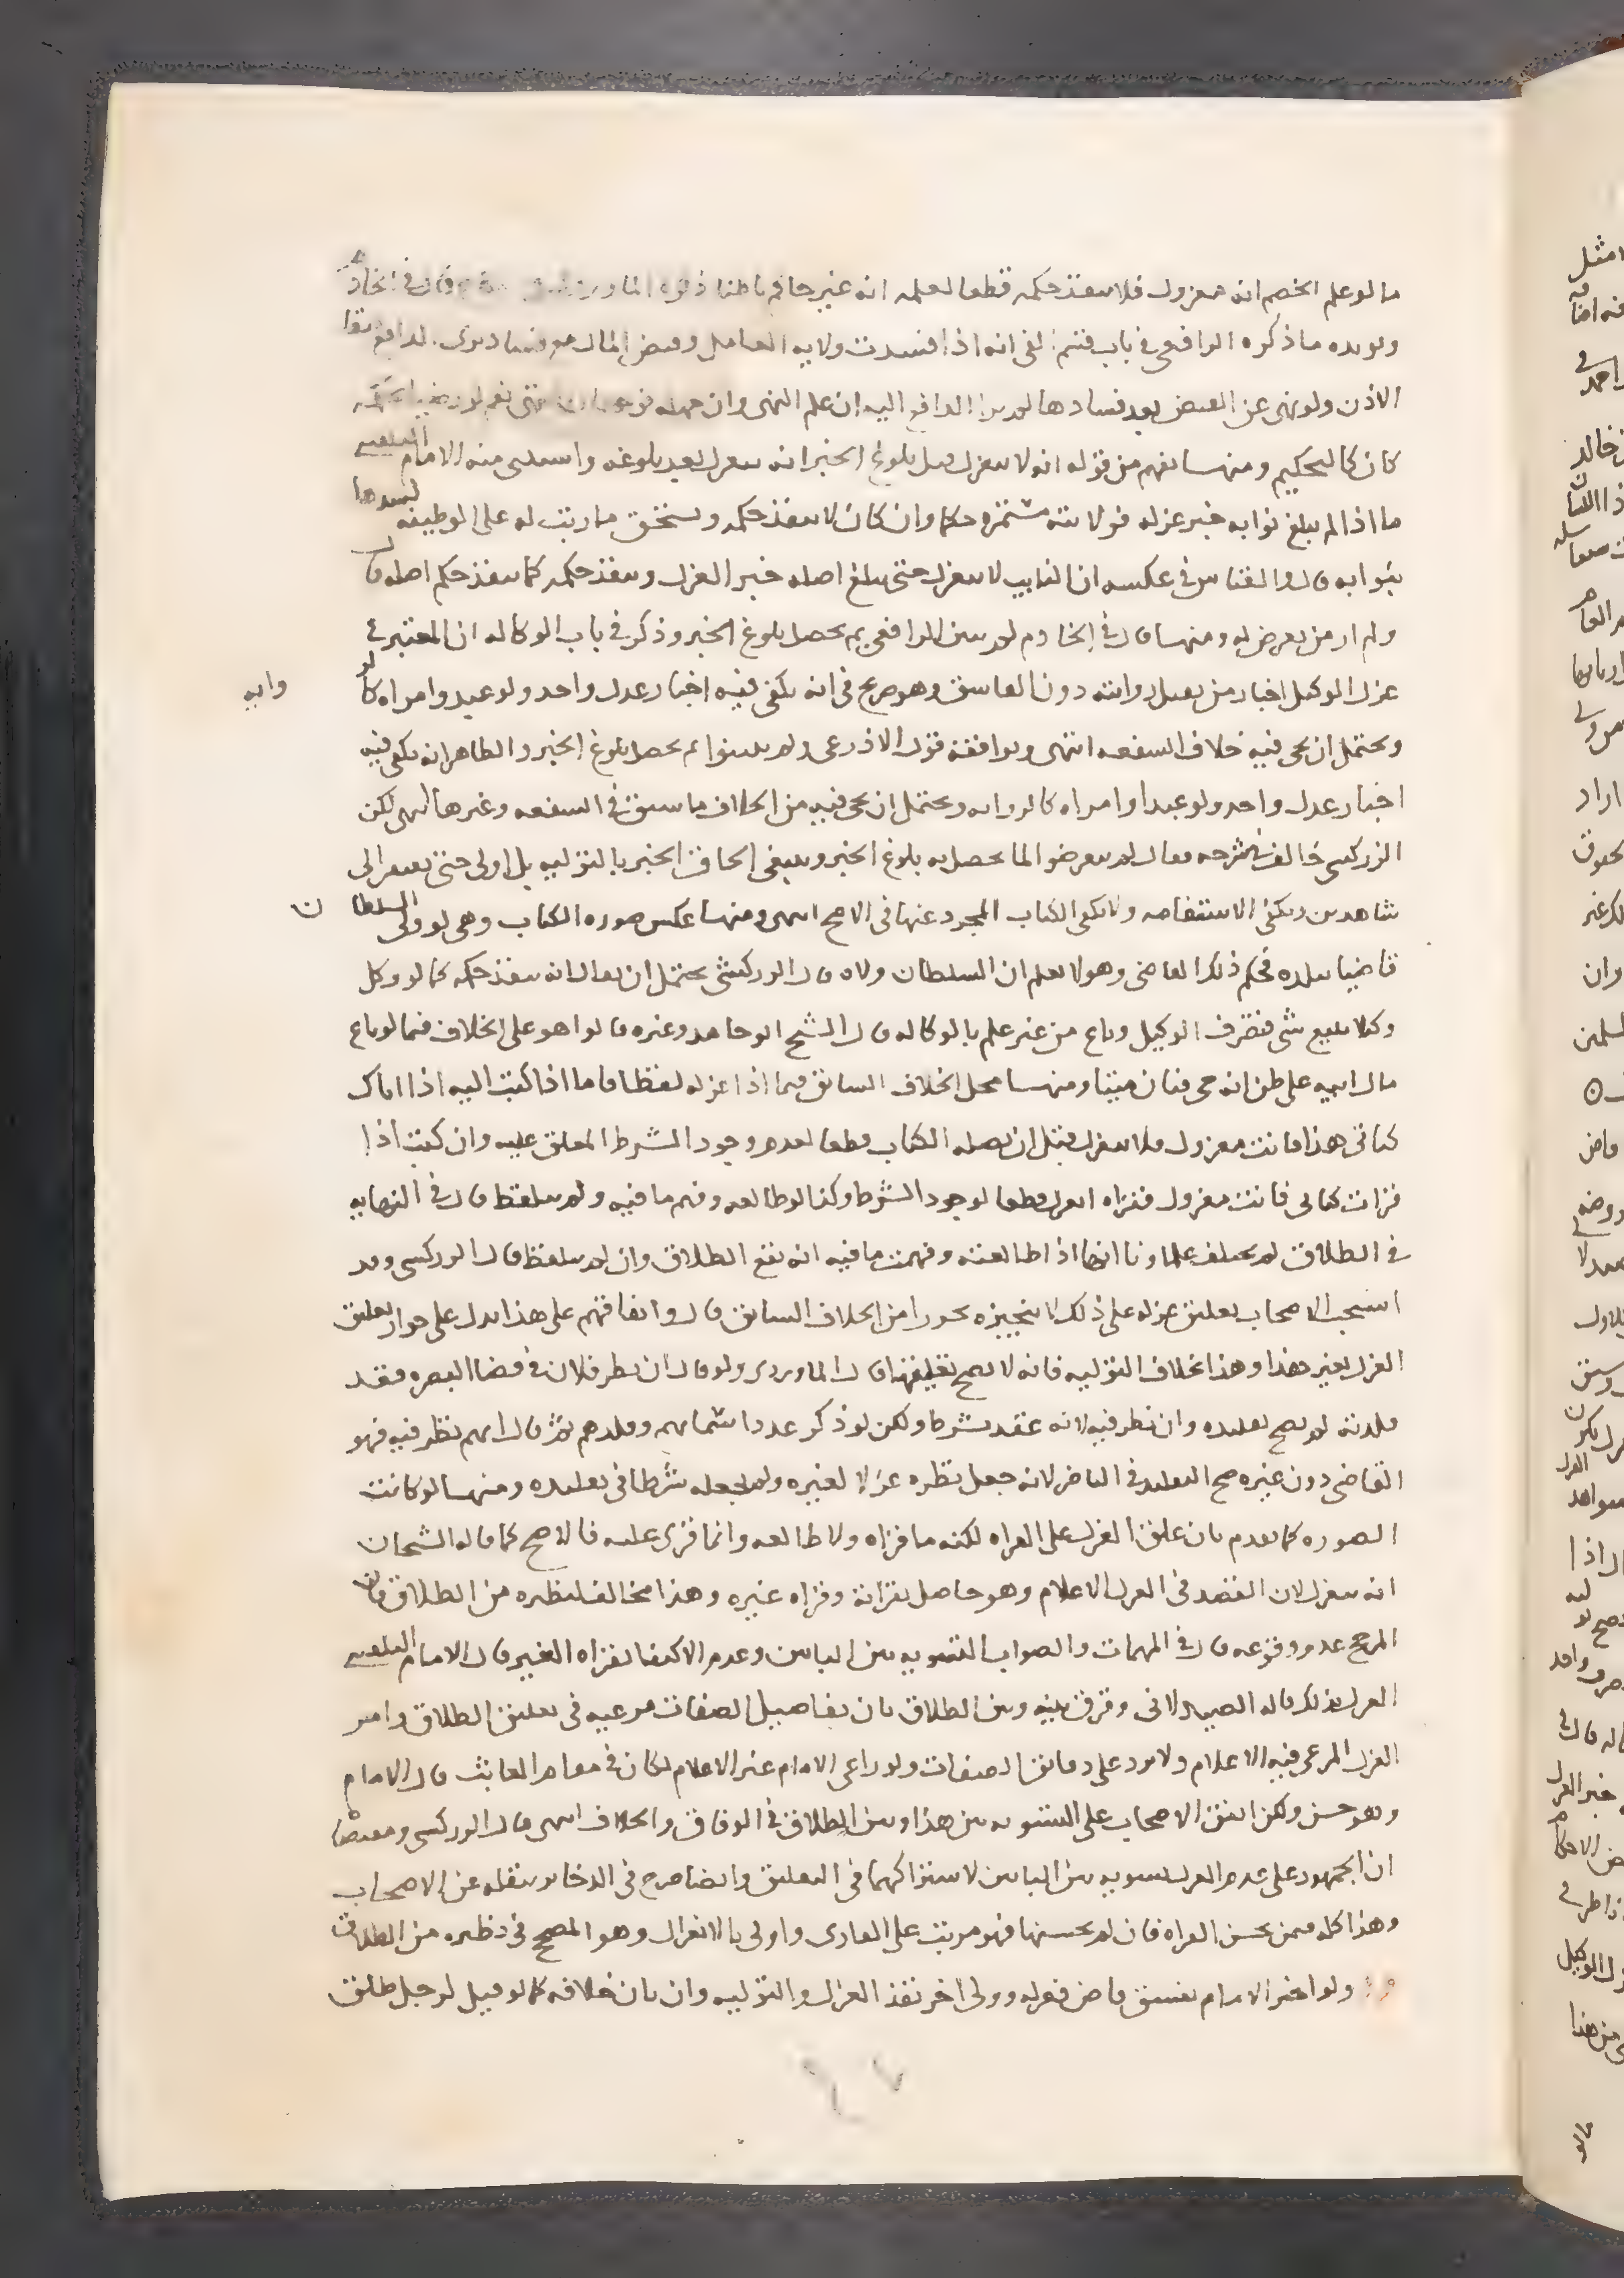 ما لو علم الخصم انه معزول فلا ينفذ حكمه قطعا لعلمه انه غير حاكم باطنا ذكره الماوردي قال في الخادم
ويويده ما ذكره الرافعي في باب قسم الفي انه اذا فسدت ولايه العامل وقبض المال مع فسادها بري الدافع لبقا
الاذن ولو نهي عن القبض بعد فسادها لم يبرا الدافع اليه ان علم النهي وان جهله فوجهان انتهى نعم لو رضي بحكمه
كان كالتحكيم ومنها يفهم من قوله انه لا ينعزل قبل بلوغ الخبر انه ينعزل بعد بلوغه واستثنى منه الامام البلقيني
ما اذا لم يبلغ نوابه خبر عزله فولايته مستمره حكما وان كان لا ينفذ حكمه ويستحق ما رتب له على الوظيفه لسدها
بنوابه قال والقياس في عكسه ان النايب لا ينعزل حتى يبلغ اصله خبر العزل وينفذ حكمه كما ينفذ حكم اصله قال
ولم ار من تعرض له ومنها قال في الخادم لم يبين الرافعي بم يحصل بلوغ الخبر وذكر في باب الوكاله ان المعتبر في
عزل الوكيل اخبار من تقبل روايته دون الفاسق وهو صريح في انه يكفي فيه اخبار عدل واحد ولو عبد وامراه كالروايه
ويحتمل ان يجي فيه خلاف الشفعه انتهى ويوافقه قول الاذرعي ولم يبينوا بم يحصل بلوغ الخبر والظاهر انه يكفي فيه
اخبار عدل واحد ولو عبدا وامراه كالروايه ويحتمل ان يجي فيه من الخلاف ما سبق في الشفعه وغيرها انتهى لكن
الزركشي خالف في شرحه فقال لم يتعرضوا لما يحصل به بلوغ الخبر وينبغي الحاق الخبر بالتوليه بل اولى حتى يعتبر الى
شاهدين وتكفي الاستفاضه ولا يكفي الكتاب المجرد عنها في الاصح انتهى ومنها عكس صوره الكتاب وهي لو ولى السلطان
قاضيا ببلده فحكم ذلك القاضي وهو لا يعلم ان السلطان ولاه قال الزركشي يحتمل ان يقال انه ينفذ حكمه كما لو وكل
وكيلا ببيع شي فتصرف الوكيل وباع من غير علم بالوكاله قال الشيخ ابو حامد وغيره قالوا هو على الخلاف فيما لو باع
مال ابيه على ظن انه حي فبان ميتا ومنها محل الخلاف السابق فيما اذا عزله لفظا فاما اذا كتب اليه اذا اتاك
كتابي هذا فانت معزول فلا ينعزل قبل ان يصله الكتاب قطعا لعدم وجود الشرط المعلق عليه وان كتب اذا
قرات كتابي فانت معزول فقراه انعزل قطعا لوجود الشرط وكذا لو طالعه وفهم ما فيه ولم يتلفظ قال في النهايه
في الطلاق لم يختلف علماونا انها اذا طالعته وفهمت ما فيه انه يقع الطلاق وان لم يتلفظ قال الزركشي وقد
استحب الاصحاب تعليق عزله على ذلك لا تنجيزه تحررا من الخلاف السابق قال واتفاقهم على هذا يدل على جواز تعليق
العزل بغير هذا وهذا بخلاف التوليه فانه لا يصح تعليقها قال الماوردي ولو قال ان نظر فلان في قضا البصره فقد
قلدته لم يصح تقليده وان نظر فيه لانه عقد بشرط ولكن لو ذكر عددا سماهم وقلدهم ثم قال ايهم نظر فيه فهو
القاضي دون غيره صح التقليد في الناظر لانه جعل نظره عزلا لغيره ولم يجعله شرطا في تقليده ومنها لو كانت
الصوره كما تقدم بان علق العزل على القراه لكنه ما قراه ولا طالعه وانما قري عليه فالاصح كما قاله الشيخان
انه ينعزل لان القصد في العزل الاعلام وهو حاصل بقراته وقراه غيره وهذا مخالف لنظيره من الطلاق فان
المرجح عدم وقوعه قال في المهمات والصواب التسويه بين البابين وعدم الاكتفا بقراه الغير قال الامام البلقيني
العزل بذلك قاله الصيدلاني وفرق بينه وبين الطلاق بان تفاصيل الصفات مرعيه في تعليق الطلاق وامر
العزل المرعي فيه الاعلام ولا مرد على دقايق الصفات ولو راعى الامام غير الاعلام لكان في مقام العابث قال الامام
وهو حسن ولكن اتفق الاصحاب على التسويه بين هذا وبين الطلاق في الوفاق والخلاف انتهى قال الزركشي ومقتضاه
ان الجمهور على عدم العزل تسويه بين البابين لاشتراكهما في التعليق وايضا صرح في الذخاير بنقله عن الاصحاب
وهذا كله فيمن يحسن القراه فان لم يحسنها فهو مرتب على القاري واولى بالانعزال وهو المصحح في نظيره من الطلاق
ولو اخبر الامام بفسق قاض فعزله وولى اخر نفذ العزل والتوليه وان بان خلافه كما لو قيل لرجل طلق